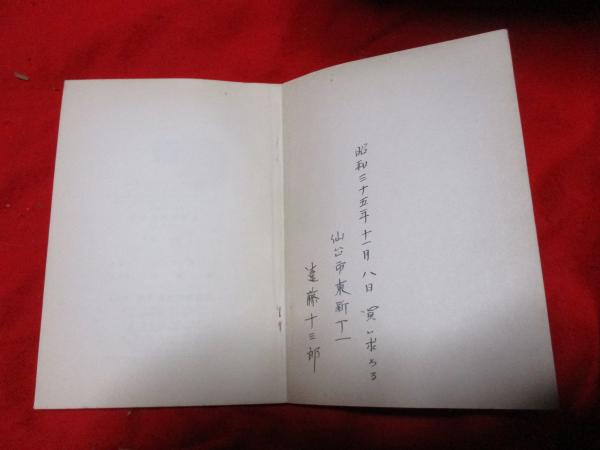 昭和三十五年十一月八日 買い求める
仙台市東新丁一
遠藤十三郎